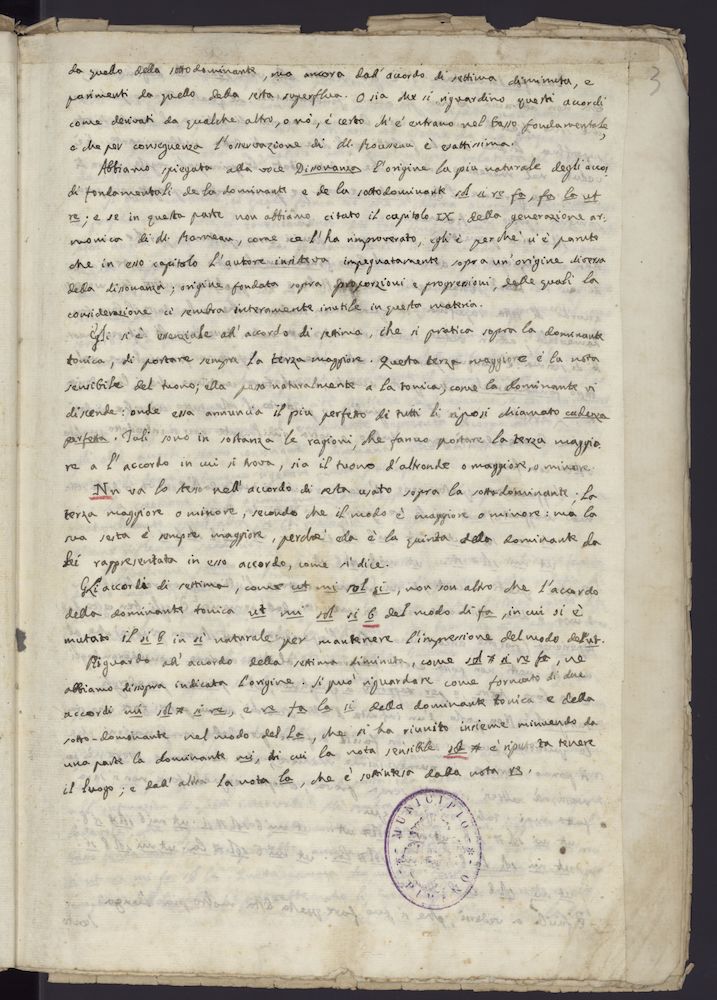 3
da quello della sottodominante, ma ancora dall' accordo di settima diminuta, e
parimenti da quello della sesta superflua. O sia che si riguardino questi accordi
come derivati da qualche altro, o nò, è certo ch' è entrano nel basso fondamentale,
e che per conseguenza l'osservazione di M. Rousseau è esattissima.
Abbiamo spiegata alla voce Dissonanza l'origine la più naturale degli accor
di fondamentali de la dominante e de la sottodominante sol si re fa, fa la ut
re; e se in questa parte non abbiamo citato il capitolo IX. della generazione ar=
monica di M. Rameau, come ce l'ha rimproverato, egli è perchè v'è paruto
che in esso capitolo l'autore insisteva impegnatamente sopra un'origine diversa
della dissonanza; origine fondata sopra proporzioni e progressioni, delle quali la
considerazione ci sembra interamente inutile in questa materia.
Egli si è essenziale all' accordo di settima, che si pratica sopra la dominante
tonica, di portare sempre la terza maggiore. Questa terza maggiore è la nota
sensibile del tuono; ella passa naturalmente a la tonica, come la dominante vi
discende: onde essa annuncia il più perfetto di tutti li riposi chiamato cadenza
perfetta. Tali sono in sostanza le ragioni, che fanno portare la terza maggio
re a l'accordo in cui si trova, sia il tuono d'altronde o maggiore, o minore.
Nn va lo steso nell' accordo di sesta usato sopra la sottodominante; la
terza maggiore o minore, secondo che il modo è maggiore o minore: ma la
sua sesta è sempre maggiore, perchè ella è la quinta della dominante da
lei rappresentata in esso accordo, come si dice.
Gli accordi di settima, come ut mi sol si, non son altro che l'accordo
della dominante tonica ut mi sol si b del modo di fa, in cui si è
mutato il si b in si naturale per mantenere l'impressione del modo de l'ut.
Riguardo all' accordo della settima diminuta, come sol # si re fa, ne
abbiamo disopra indicata l'origine. Si può riguardare come formato di due
accordi mi sol # si re, e re fa la si della dominante tonica e della
sotto-dominante nel modo del La, che si ha riunito insieme minuendo da
una parte la dominante mi, di cui la nota sensibile sol # è riputata tenere
il luogo; e dall' altra la nota la, che è sottintesa dalla nota re.
MUNICIPIO
PIRANO